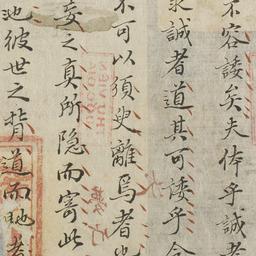 不容諉矣夫体乎誠者
誠者道其可諉乎今
不可以須臾離焉者也
妄之真所隐而寄此
池彼世之背道而馳者